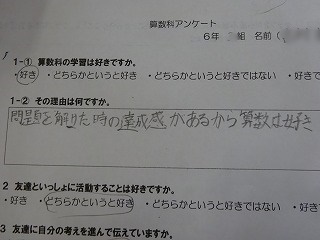 算数科アンケート
6年 組 名前(
1-① 算数科の学習は好きですか。
・好き ・どちらかというと好き ・どちらかというと好きではない ・好き
1-② その理由は何ですか。
問題を解けた時の達成感があるから算数は好き
2 友達といっしょに活動することは好きですか。
・好き ・どちらかというと好き ・どちらかというと好きではない
3 友達に自分の考えを進んで伝えていますか。